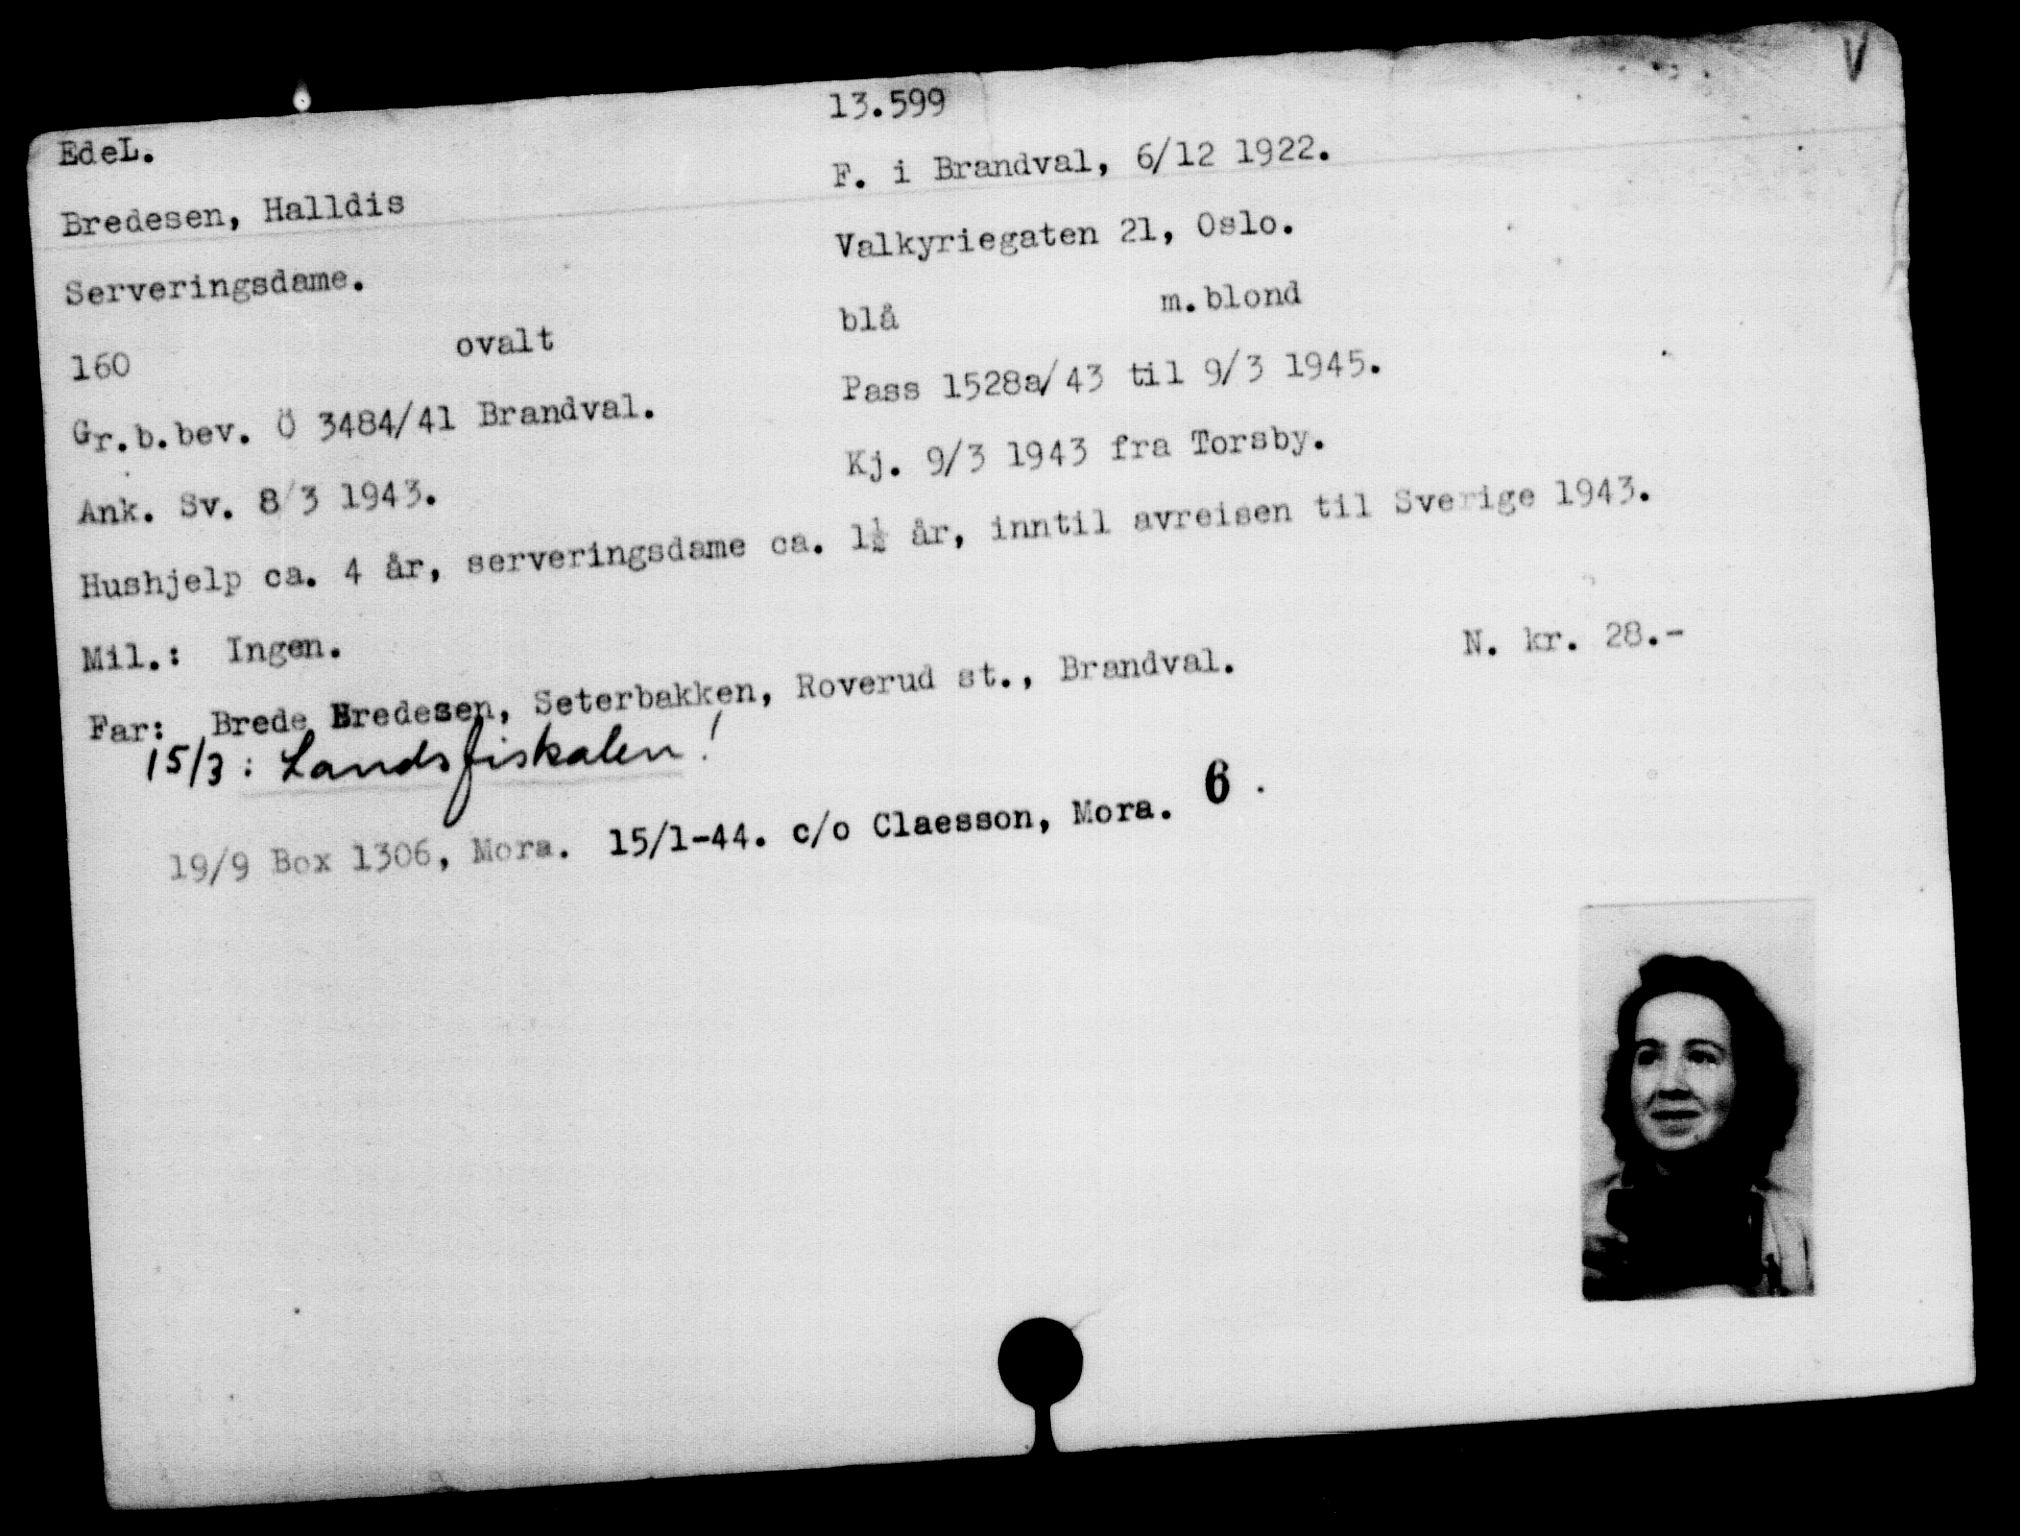 V
13.599
EdeL.
F. i Brandval, 6/12 1922.
Bredesen, Halldis
Valkyriegaten 21, Oslo.
Serveringsdame.
blå m.blond
160 ovalt
Pass 1528a/43 til 9/3 1945.
Gr.b.bev. Ö 3484/41 Brandval.
Kj. 9/3 1943 fra Torsby.
Ank. Sv. 8/3 1943.
Hushjelp ca. 4 år, serveringsdame ca. 1½ år, inntil avreisen til Sverige 1943.
Mil.: Ingen.
N. kr. 28.-
Far: Brede Bredesen, Seterbakken, Roverud st., Brandval.
15/3: Landsfiskalen!
19/9 Box 1306, Mora. 15/1-44. c/o Claesson, Mora. 6.